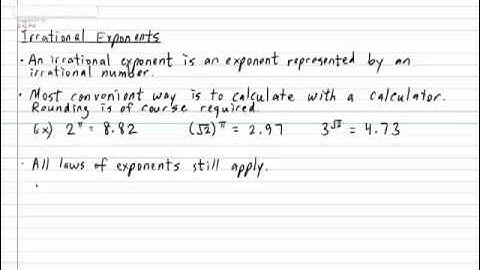 Irrational Exponents
• An irrational exponent is an exponent represented by an
irrational number.
• Most convenient way is to calculate with a calculator.
Rounding is of course required.
Ex) 2^π = 8.82 (√2)^π = 2.97 3^√2 = 4.73
• All laws of exponents still apply.